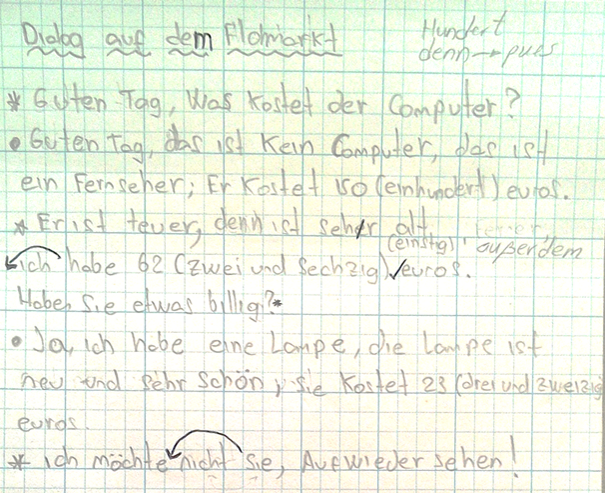 Dialog auf dem Flohmarkt
Hundert
denn → pues
* Guten Tag, Was kostet der Computer?
• Guten Tag, das ist kein Computer, das ist
ein Fernseher; Er kostet 150 (einhundert) euros.
* Er ist teuer, denn ist sehr alt,
(einstig), außerdem
ich habe 62 (zwei und sechzig) euros.
Haben Sie etwas billig?*
• Ja, ich habe eine Lampe, die Lampe ist
neu und sehr schön; sie kostet 23 (drei und zweizig
euros.
* ich möchte nicht sie, Aufwieder sehen!